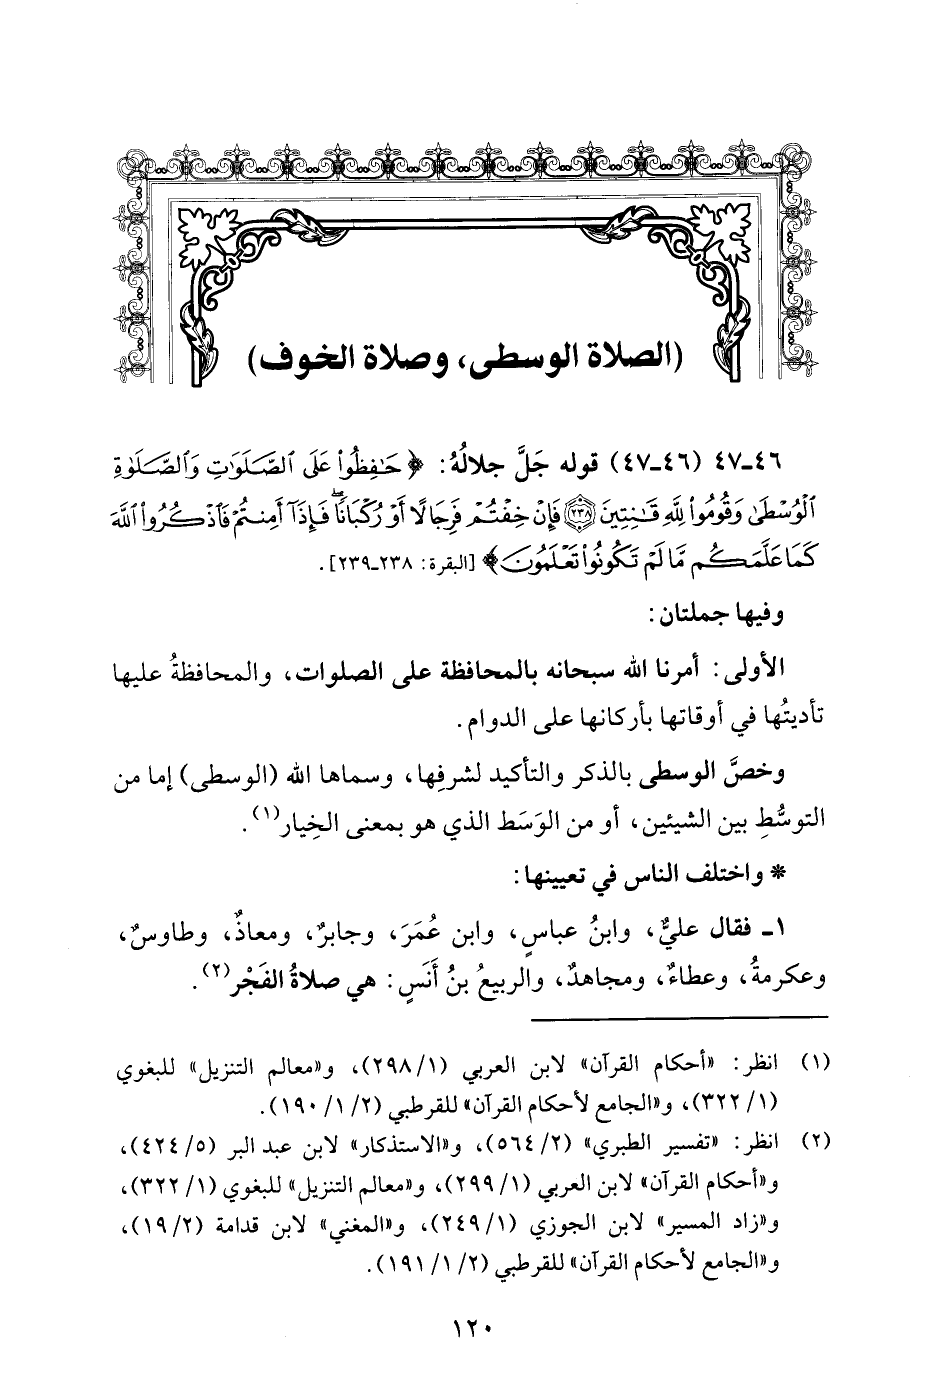 (الصلاة الوسطى، وصلاة الخوف)
٤٦ـ٤٧ (٤٦ـ٤٧) قوله جَلَّ جلالُهُ: ﴿حَٰفِظُوا۟ عَلَى ٱلصَّلَوَٰتِ وَٱلصَّلَوٰةِ
ٱلْوُسْطَىٰ وَقُومُوا۟ لِلَّهِ قَٰنِتِينَ ۝٢٣٨ فَإِنْ خِفْتُمْ فَرِجَالًا أَوْ رُكْبَانًا ۖ فَإِذَآ أَمِنتُمْ فَٱذْكُرُوا۟ ٱللَّهَ
كَمَا عَلَّمَكُم مَّا لَمْ تَكُونُوا۟ تَعْلَمُونَ﴾ [البقرة: ٢٣٨ـ٢٣٩].
وفيها جملتان:
الأولى: أمرنا الله سبحانه بالمحافظة على الصلوات، والمحافظةُ عليها
تأديتُها في أوقاتها بأركانها على الدوام.
وخصَّ الوسطى بالذكر والتأكيد لشرفِها، وسماها الله (الوسطى) إما من
التوسُّطِ بين الشيئين، أو من الوَسَط الذي هو بمعنى الخِيار(١).
* واختلف الناس في تعيينها:
١ـ فقال عليٌّ، وابنُ عباسٍ، وابن عُمَرَ، وجابرٌ، ومعاذٌ، وطاوسٌ،
وعكرمةُ، وعطاءٌ، ومجاهدٌ، والربيعُ بنُ أَنَسٍ: هي صلاةُ الفَجْر(٢).
(١) انظر: «أحكام القرآن» لابن العربي (١/ ٢٩٨)، و«معالم التنزيل» للبغوي
(١/ ٣٢٢)، و«الجامع لأحكام القرآن» للقرطبي (٢/ ١/ ١٩٠).
(٢) انظر: «تفسير الطبري» (٢/ ٥٦٤)، و«الاستذكار» لابن عبد البر (٥/ ٤٢٤)،
و«أحكام القرآن» لابن العربي (١/ ٢٩٩)، و«معالم التنزيل» للبغوي (١/ ٣٢٢)،
و«زاد المسير» لابن الجوزي (١/ ٢٤٩)، و«المغني» لابن قدامة (٢/ ١٩)،
و«الجامع لأحكام القرآن» للقرطبي (٢/ ١/ ١٩١).
١٢٠